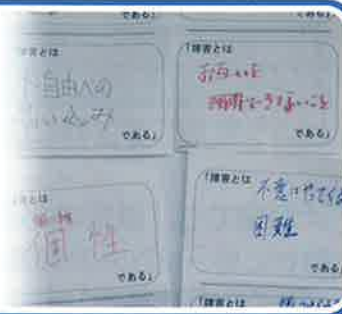 である」
である」
「障害とは
自由への
思い込み
である」
「障害とは
お互いを
理解できないこと
である」
障害とは
個性
である」
「障害とは
不意にやってくる
困難
である」
「障害とは